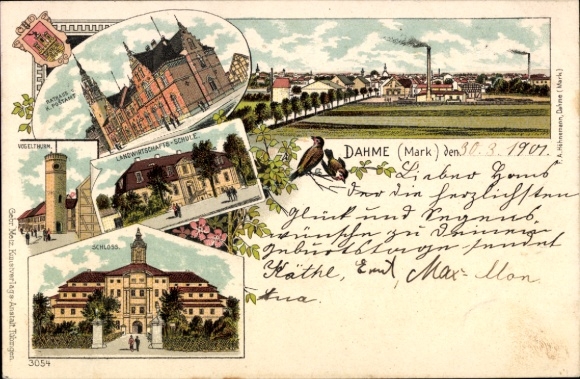 RATHAUS
K. POSTAMT
VOGELTHURM.
LANDWIRTSCHAFTS-SCHULE.
SCHLOSS.
DAHME (Mark) den 30.3.1901.
Lieber Hans
der die herzlichsten
Glück und Segens
wünsche zu Deinem
Geburtstage sendet
Käthl, Emil, Max
Gebr. Metz, Kunstverlags-Anstalt, Tübingen.
3054
F. A. Hühnemann, Dahme (Mark)